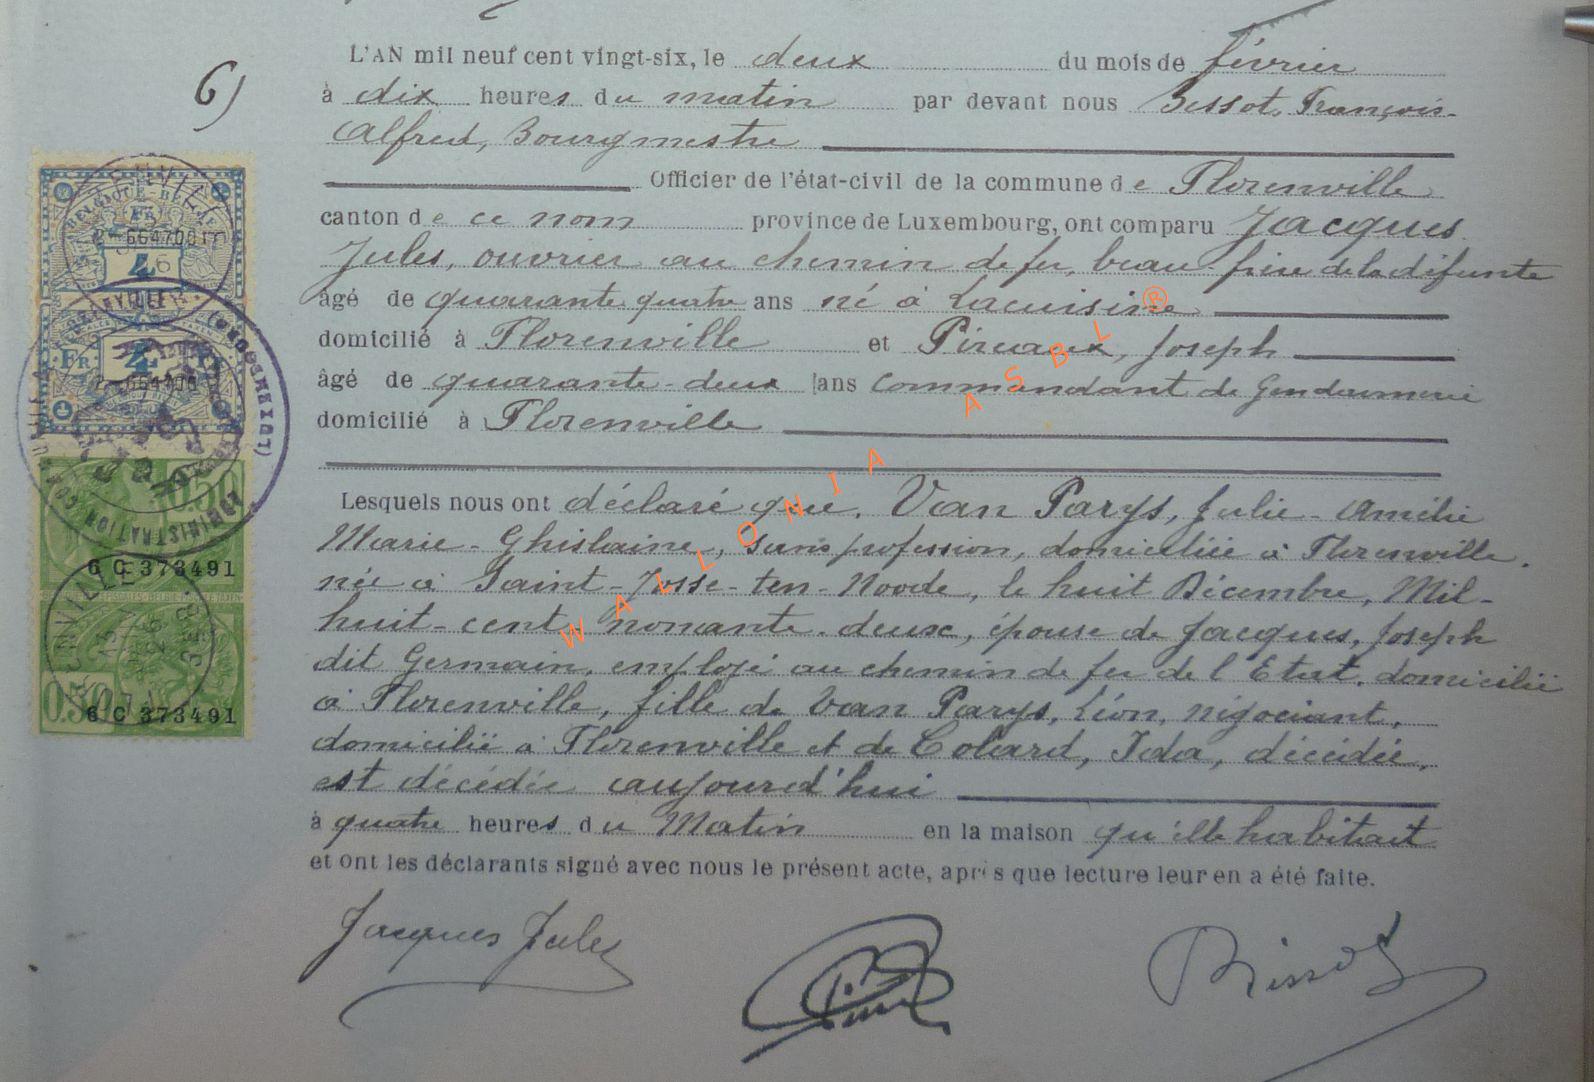 6)
L'AN mil neuf cent vingt-six, le deux du mois de février
à dix heures du matin par devant nous Bissot, François-
Alfred, Bourgmestre
Officier de l'état-civil de la commune de Florenville
canton de ce nom province de Luxembourg, ont comparu Jacques
Jules, ouvrier au chemin de fer, beau-frère de la défunte
âgé de quarante quatre ans né à Lacuisine
domicilié à Florenville et Pireaux, Joseph
âgé de quarante-deux ans Commandant de Gendarmerie
domicilié à Florenville
Lesquels nous ont déclaré que, Van Parys, Julie-Amélie
Marie-Ghislaine, sans profession, domiciliée à Florenville,
née à Saint-Josse-ten-Noode, le huit Décembre, Mil-
huit-cent-nonante-deux, épouse de Jacques, Joseph
dit Germain, employé au chemin de fer de l'Etat, domicilié
à Florenville, fille de Van Parys, Léon, négociant,
domicilié à Florenville et de Colard, Ida, décédée,
est décédée aujourd'hui
à quatre heures du Matin en la maison qu'elle habitait
et ont les déclarants signé avec nous le présent acte, après que lecture leur en a été faite.
Jacques Jules
Bissot
BELGIQUE BELGIE
FR
4
FR. 4
0.50
6 C 373491
0.50
6 C 373491
ADMINISTRATION COMMUNALE
(LUXEMBOURG)
WALLONIA ASBL ®